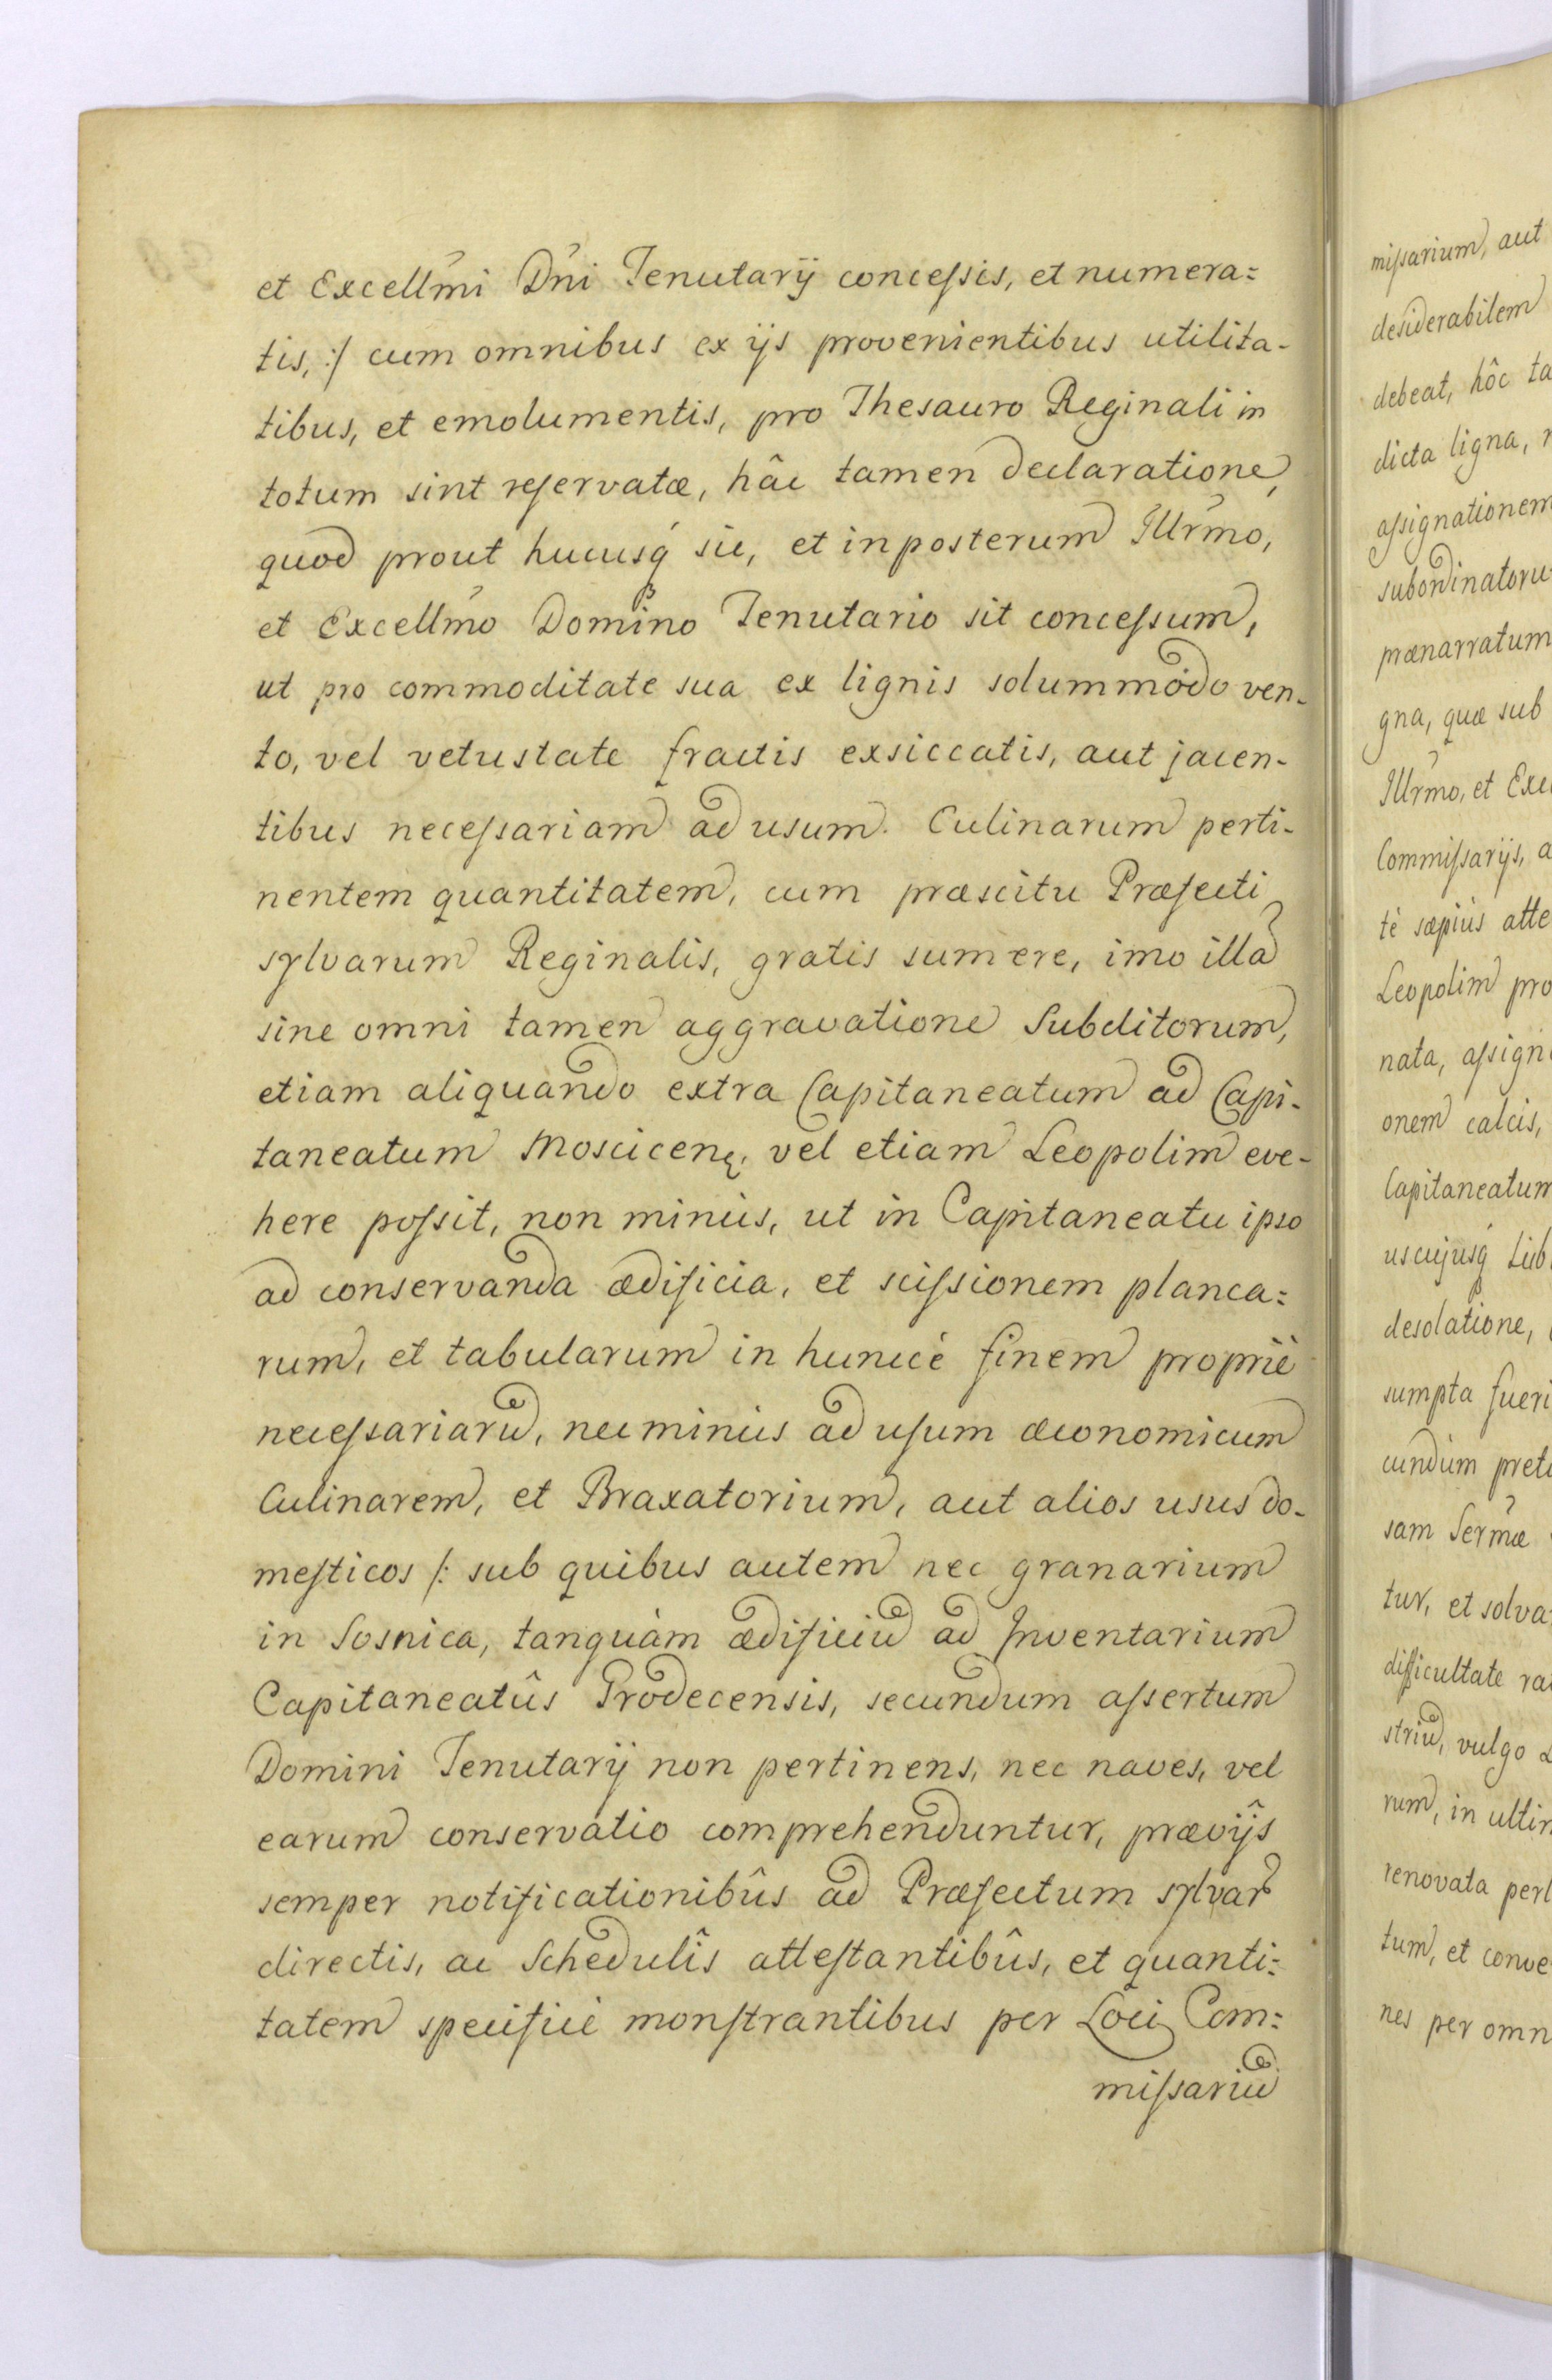 et Excellm̃i Dñi Tenutarÿ concessis, et numera=
tis, :/ cum omnibus ex ÿs provenientibus utilita-
tibus, et emolumentis, pro Thesauro Reginali in
totum sint reservatæ, hâc tamen declaratione,
quod prout hucusq́ sic, et inposterum Illrm̃o,
et Excellm̃o Domino Tenutario sit concessum,
ut pro commoditate sua ex lignis solummodo ven-
to, vel vetustate fractis exsiccatis, aut jacen-
tibus necessariam ad usum Culinarum perti-
nentem quantitatem, cum præscitu Præfecti
sylvarum Reginalis, gratis sumere, imo illa
sine omni tamen aggravatione Subditorum,
etiam aliquando extra Capitaneatum ad Capi-
taneatum Moscicenę, vel etiam Leopolim eve-
here possit, non minùs, ut in Capitaneatu ipso
ad conservanda ædificia, et scissionem planca=
rum, et tabularum in huncce finem propriè
necessariarũ, nec minùs ad usum œconomicum
Culinarem, et Braxatorium, aut alios usus do-
mesticos /: sub quibus autem nec granarium
in Sosnica, tanquàm ædificiũ ad Inventarium
Capitaneatûs Grodecensis, secundum assertum
Domini Tenutarÿ non pertinens, nec naves, vel
earum conservatio comprehenduntur, prævÿs
semper notificationibûs ad Præfectum sylvar̃
directis, ac Schedulîs attestantibûs, et quanti=
tatem specificè monstrantibus per Loci Com=
missariũ
missarium, aut
desiderabilem
debeat, hôc ta
dicta ligna,
assignationem
subordinatoru
prænarratum
gna, quæ sub
Illrm̃o, et Exce
Commissarÿs, a
tè sæpiùs atte
Leopolim pro
nata, assign
onem calcis,
Capitaneatum
uscujusq́ Sub
desolatione,
sumpta fueri
cundùm preti
sam Serm̃æ
tur, et solva
difficultate ra
striũ, vulgo
rum, in ultim
renovata perl
tum, et conve
nes per omn